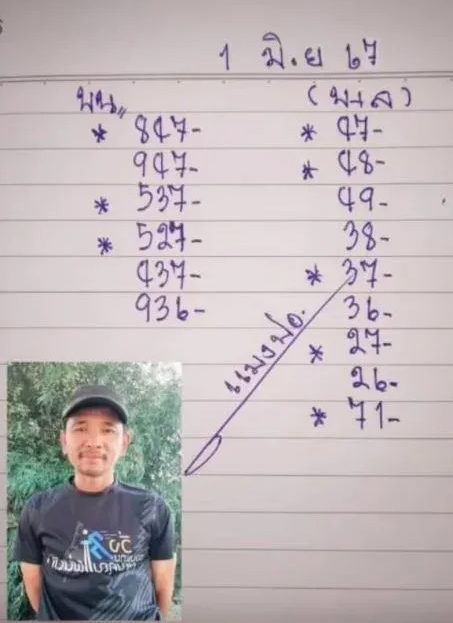 1 มิ.ย 67
บน,,
* 847-
947-
* 537-
* 527-
437-
936-
(บนล)
* 47-
* 48-
49-
38-
* 37-
36-
* 27-
26-
* 71-
แมงปอ.
วิ่ง